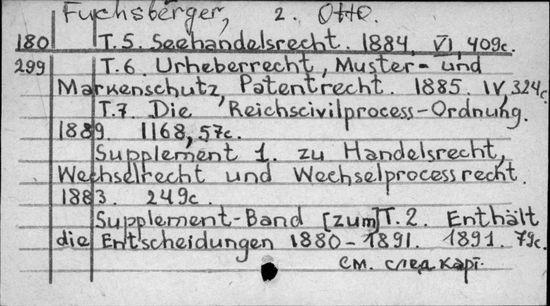 Fuchsberger, 2. Otto.
180 T.5. Seehandelsrecht. 1884. VI, 409c.
299 T.6. Urheberrecht, Muster- und
Markenschutz, Patentrecht. 1885. IV, 324c
T.7. Die Reichscivilprocess-Ordnung.
1889. 1168, 57c.
Supplement 1. zu Handelsrecht,
Wechselrecht und Wechselprocessrecht.
1883. 249c.
Supplement-Band [zum] T.2. Enthält
die Entscheidungen 1880-1891. 1891. 79c.
См. след карт.